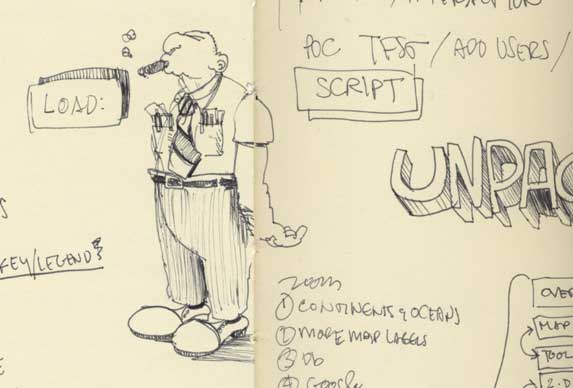 LOAD:
KEY/LEGEND?
POC TEST / ADD USERS /
SCRIPT
UNPAC
ZOOM
① CONTINENTS & OCEANS
② MORE MAP LABELS
③ Ob
④ GOOGLE
OVER
MAP
TOOL
2-D